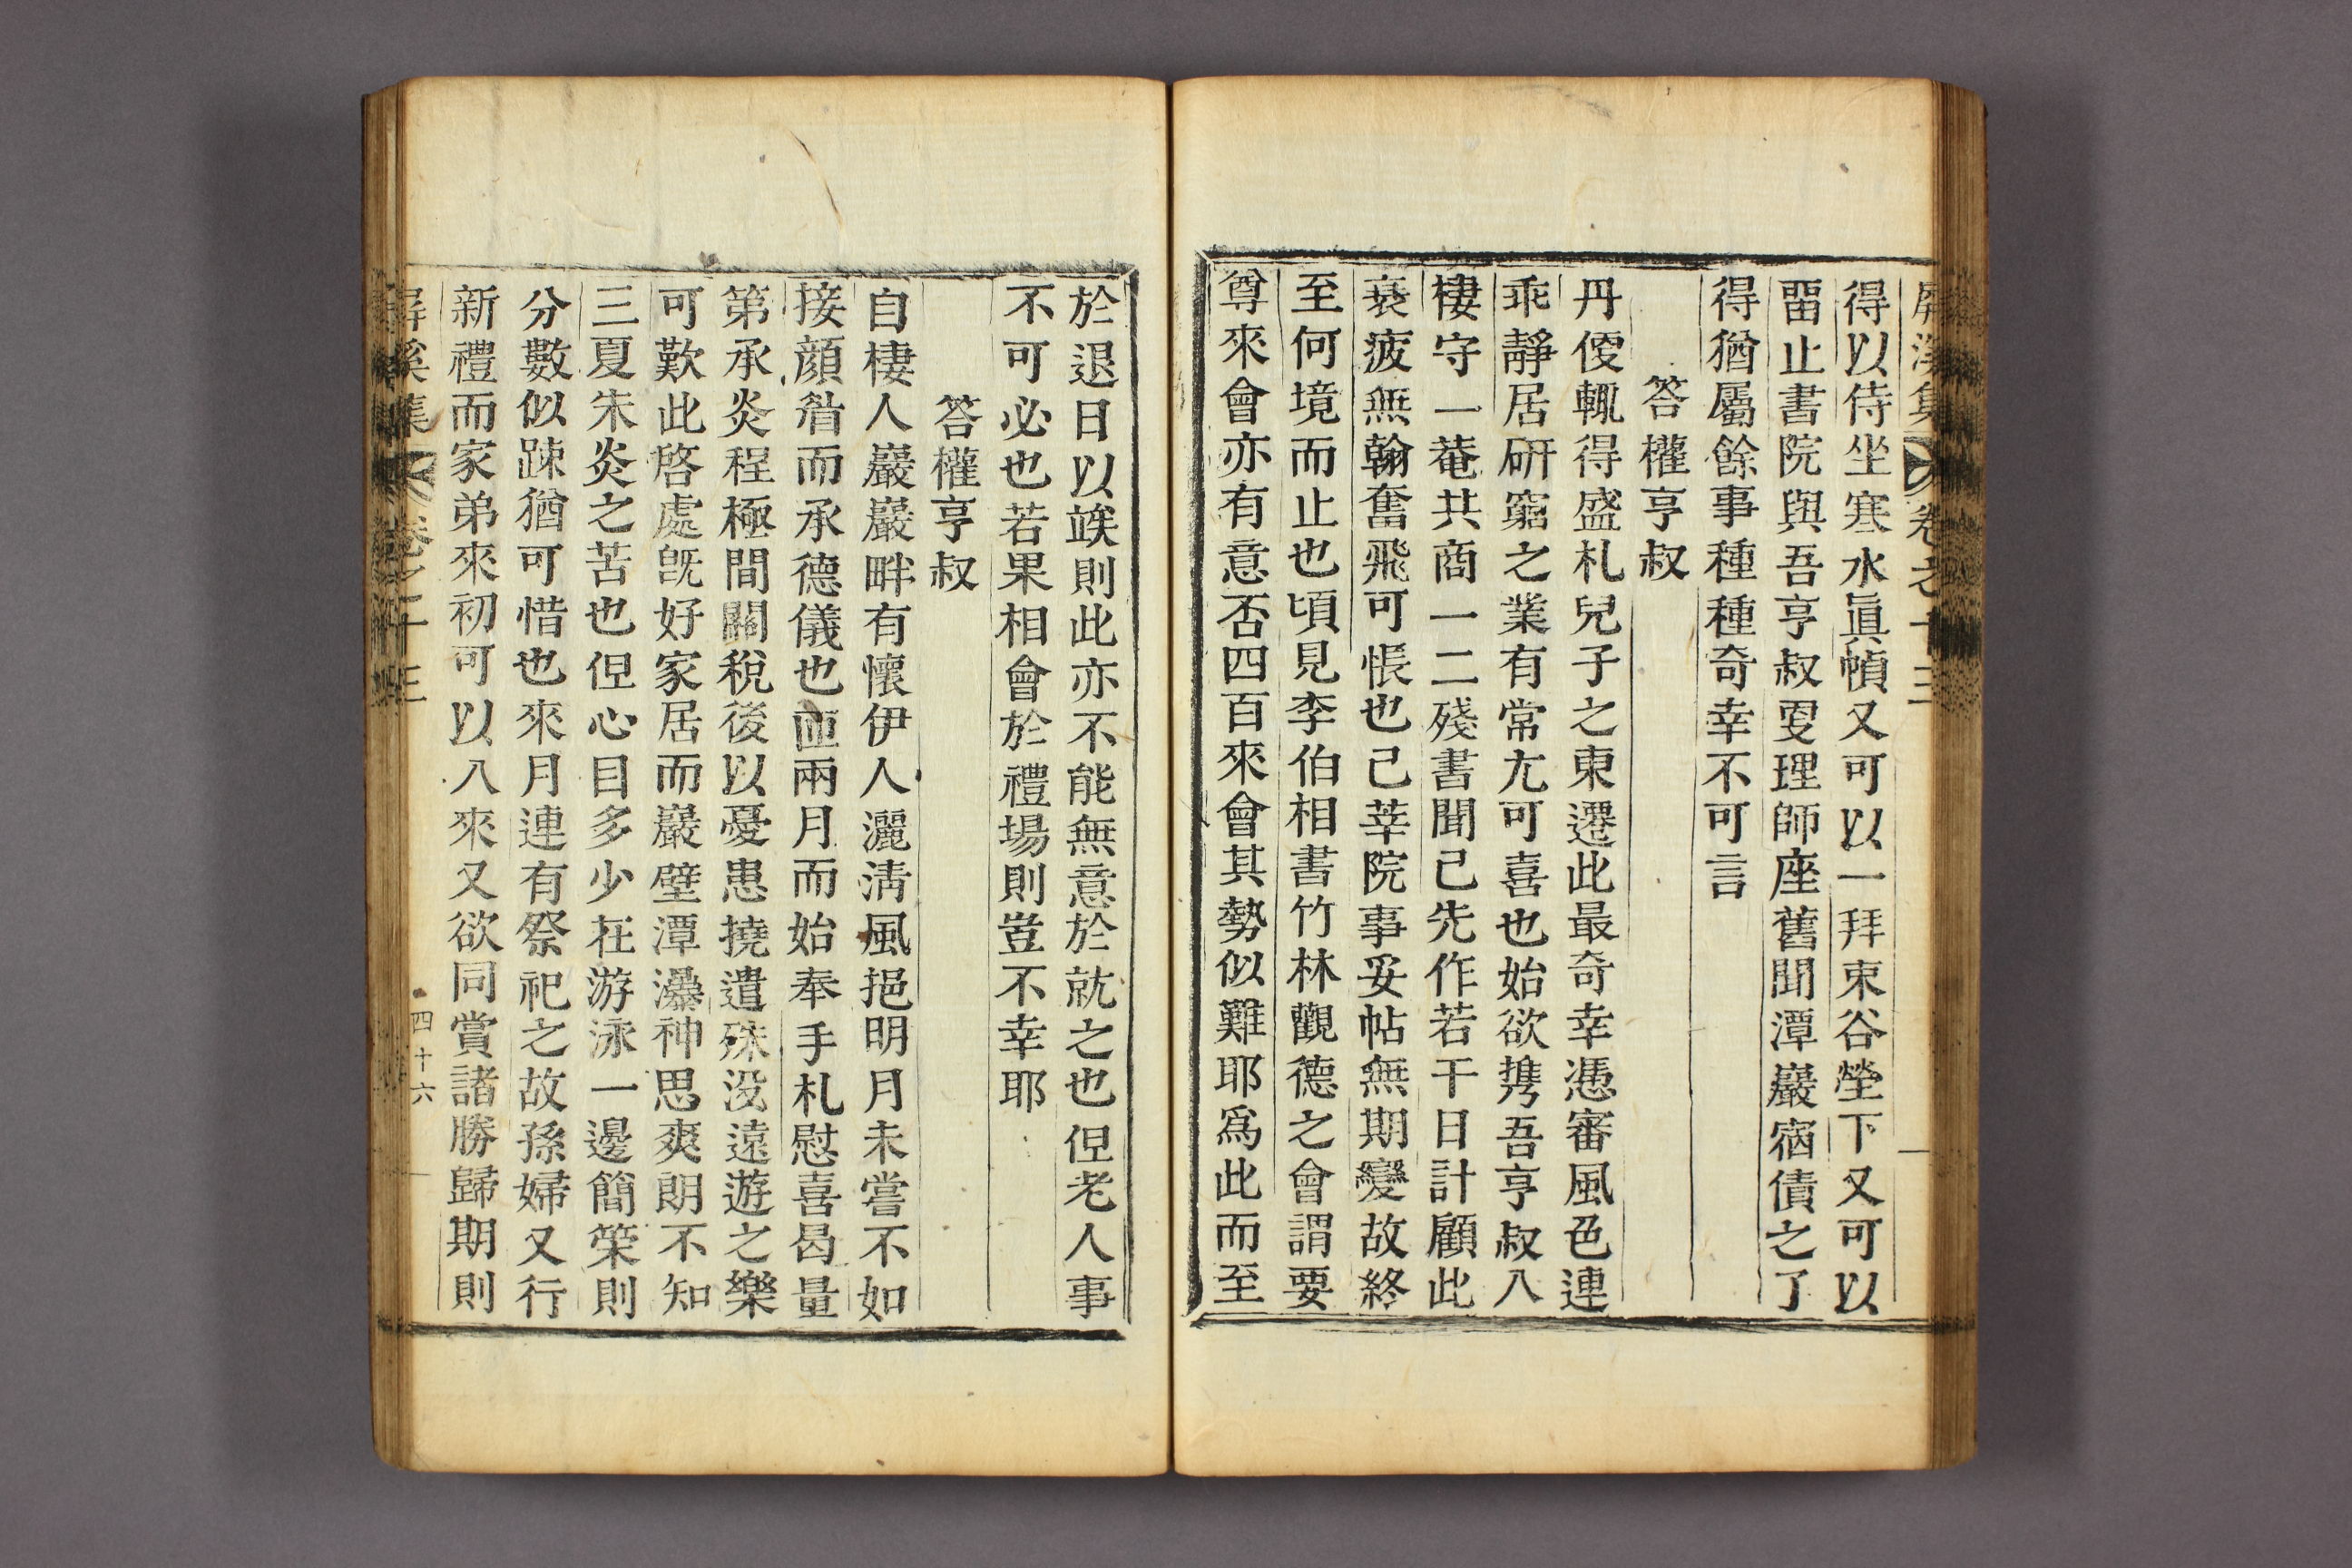 屏溪集 卷之十三
得以侍坐寒水眞幀又可以一拜東谷塋下又可以
畱止書院與吾亨叔更理師座舊聞潭巖宿債之了
得猶屬餘事種種奇幸不可言
答權亨叔
丹便輒得盛札兒子之東遷此最奇幸憑審風色連
乖靜居硏窮之業有常尤可喜也始欲携吾亨叔八
棲守一菴共商一二殘書聞已先作若干日計顧此
衰疲無翰奮飛可悵也已莘院事妥帖無期變故終
至何境而止也頃見李伯相書竹林觀德之會謂要
尊來會亦有意否四百來會其勢似難耶爲此而至
於退日以竢則此亦不能無意於就之也但老人事
不可必也若果相會於禮場則豈不幸耶
答權亨叔
自棲人巖巖畔有懷伊人灑淸風挹明月未嘗不如
接顔眉而承德儀也匝兩月而始奉手札慰喜曷量
第承炎程極間關稅後以憂患撓遣殊沒遠遊之樂
可歎此啓處旣好家居而巖壁潭瀑神思爽朗不知
三夏朱炎之苦也但心目多少在游泳一邊簡策則
分數似踈猶可惜也來月連有祭祀之故孫婦又行
新禮而家弟來初可以入來又欲同賞諸勝歸期則
屏溪集 卷之十三 四十六